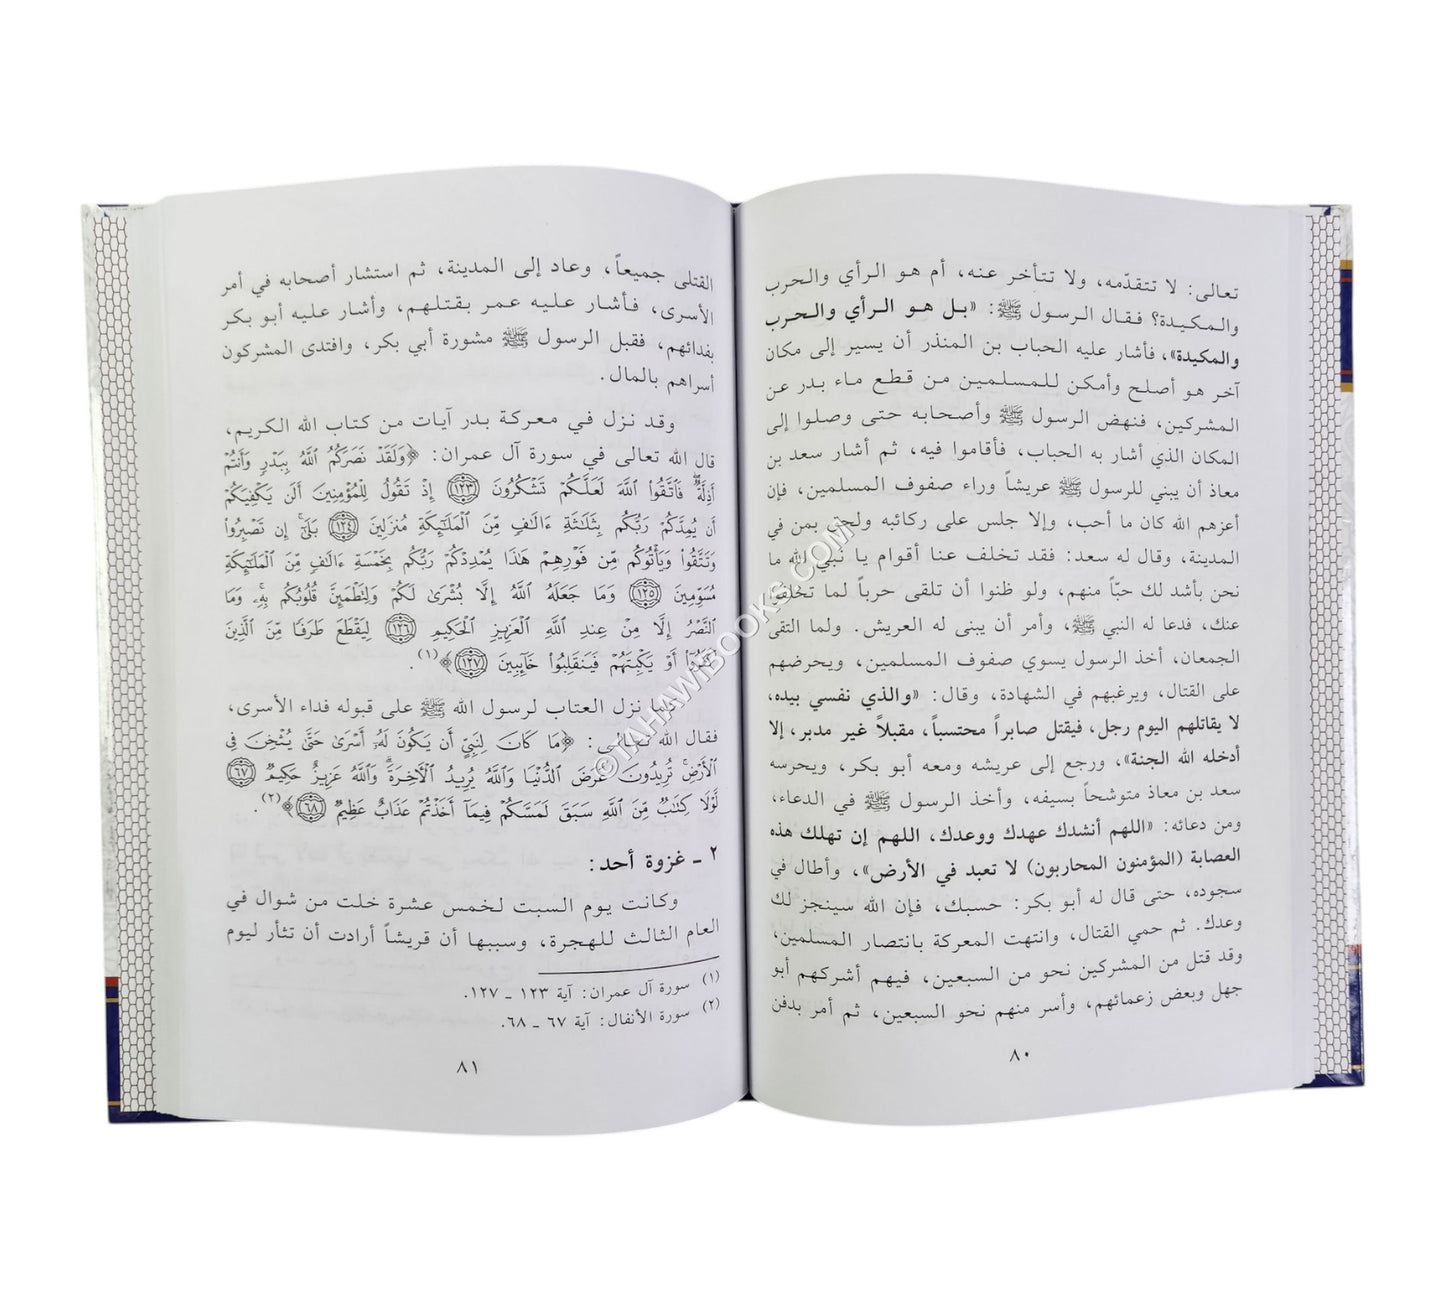 تعالى: لا تتقدّمه، ولا تتأخر عنه، أم هو الرأي والحرب
والمكيدة؟ فقال الرسول ﷺ: «بل هو الرأي والحرب
والمكيدة»، فأشار عليه الحباب بن المنذر أن يسير إلى مكان
آخر هو أصلح وأمكن للمسلمين من قطع ماء بدر عن
المشركين، فنهض الرسول ﷺ وأصحابه حتى وصلوا إلى
المكان الذي أشار به الحباب، فأقاموا فيه، ثم أشار سعد بن
معاذ أن يبني للرسول ﷺ عريشاً وراء صفوف المسلمين، فإن
أعزهم الله كان ما أحب، وإلا جلس على ركائبه ولحق بمن في
المدينة، وقال له سعد: فقد تخلف عنا أقوام يا نبي الله ما
نحن بأشد لك حبّاً منهم، ولو ظنوا أن تلقى حرباً لما تخلفوا
عنك، فدعا له النبي ﷺ، وأمر أن يبنى له العريش. ولما التقى
الجمعان، أخذ الرسول يسوي صفوف المسلمين، ويحرضهم
على القتال، ويرغبهم في الشهادة، وقال: «والذي نفسي بيده،
لا يقاتلهم اليوم رجل، فيقتل صابراً محتسباً، مقبلاً غير مدبر، إلا
أدخله الله الجنة»، ورجع إلى عريشه ومعه أبو بكر، ويحرسه
سعد بن معاذ متوشحاً بسيفه، وأخذ الرسول ﷺ في الدعاء،
ومن دعائه: «اللهم أنشدك عهدك ووعدك، اللهم إن تهلك هذه
العصابة (المؤمنون المحاربون) لا تعبد في الأرض»، وأطال في
سجوده، حتى قال له أبو بكر: حسبك، فإن الله سينجز لك
وعدك. ثم حمي القتال، وانتهت المعركة بانتصار المسلمين،
وقد قتل من المشركين نحو من السبعين، فيهم أشركهم أبو
جهل وبعض زعمائهم، وأسر منهم نحو السبعين، ثم أمر بدفن
٨٠
القتلى جميعاً، وعاد إلى المدينة، ثم استشار أصحابه في أمر
الأسرى، فأشار عليه عمر بقتلهم، وأشار عليه أبو بكر
بفدائهم، فقبل الرسول ﷺ مشورة أبي بكر، وافتدى المشركون
أسراهم بالمال.
وقد نزل في معركة بدر آيات من كتاب الله الكريم،
قال الله تعالى في سورة آل عمران: ﴿وَلَقَدْ نَصَرَكُمُ اللَّهُ بِبَدْرٍ وَأَنتُمْ
أَذِلَّةٌ فَاتَّقُوا اللَّهَ لَعَلَّكُمْ تَشْكُرُونَ ١٢٣ إِذْ تَقُولُ لِلْمُؤْمِنِينَ أَلَن يَكْفِيَكُمْ
أَن يُمِدَّكُمْ رَبُّكُم بِثَلَاثَةِ ءَالَافٍ مِّنَ الْمَلَائِكَةِ مُنزَلِينَ ١٢٤ بَلَىٰ إِن تَصْبِرُوا
وَتَتَّقُوا وَيَأْتُوكُم مِّن فَوْرِهِمْ هَٰذَا يُمْدِدْكُمْ رَبُّكُم بِخَمْسَةِ ءَالَافٍ مِّنَ الْمَلَائِكَةِ
مُسَوِّمِينَ ١٢٥ وَمَا جَعَلَهُ اللَّهُ إِلَّا بُشْرَىٰ لَكُمْ وَلِتَطْمَئِنَّ قُلُوبُكُم بِهِ وَمَا
النَّصْرُ إِلَّا مِنْ عِندِ اللَّهِ الْعَزِيزِ الْحَكِيمِ ١٢٦ لِيَقْطَعَ طَرَفًا مِّنَ الَّذِينَ
كَفَرُوا أَوْ يَكْبِتَهُمْ فَيَنقَلِبُوا خَائِبِينَ ١٢٧﴾(١).
كما نزل العتاب لرسول الله ﷺ على قبوله فداء الأسرى،
فقال الله تعالى: ﴿مَا كَانَ لِنَبِيٍّ أَن يَكُونَ لَهُ أَسْرَىٰ حَتَّىٰ يُثْخِنَ فِي
الْأَرْضِ تُرِيدُونَ عَرَضَ الدُّنْيَا وَاللَّهُ يُرِيدُ الْآخِرَةَ وَاللَّهُ عَزِيزٌ حَكِيمٌ ٦٧
لَّوْلَا كِتَابٌ مِّنَ اللَّهِ سَبَقَ لَمَسَّكُمْ فِيمَا أَخَذْتُمْ عَذَابٌ عَظِيمٌ ٦٨﴾(٢).
٢ ـ غزوة أحد:
وكانت يوم السبت لخمس عشرة خلت من شوال في
العام الثالث للهجرة، وسببها أن قريشاً أرادت أن تثأر ليوم
(١) سورة آل عمران: آية ١٢٣ ـ ١٢٧.
(٢) سورة الأنفال: آية ٦٧ ـ ٦٨.
٨١
©TAHAWIBOOKS.COM